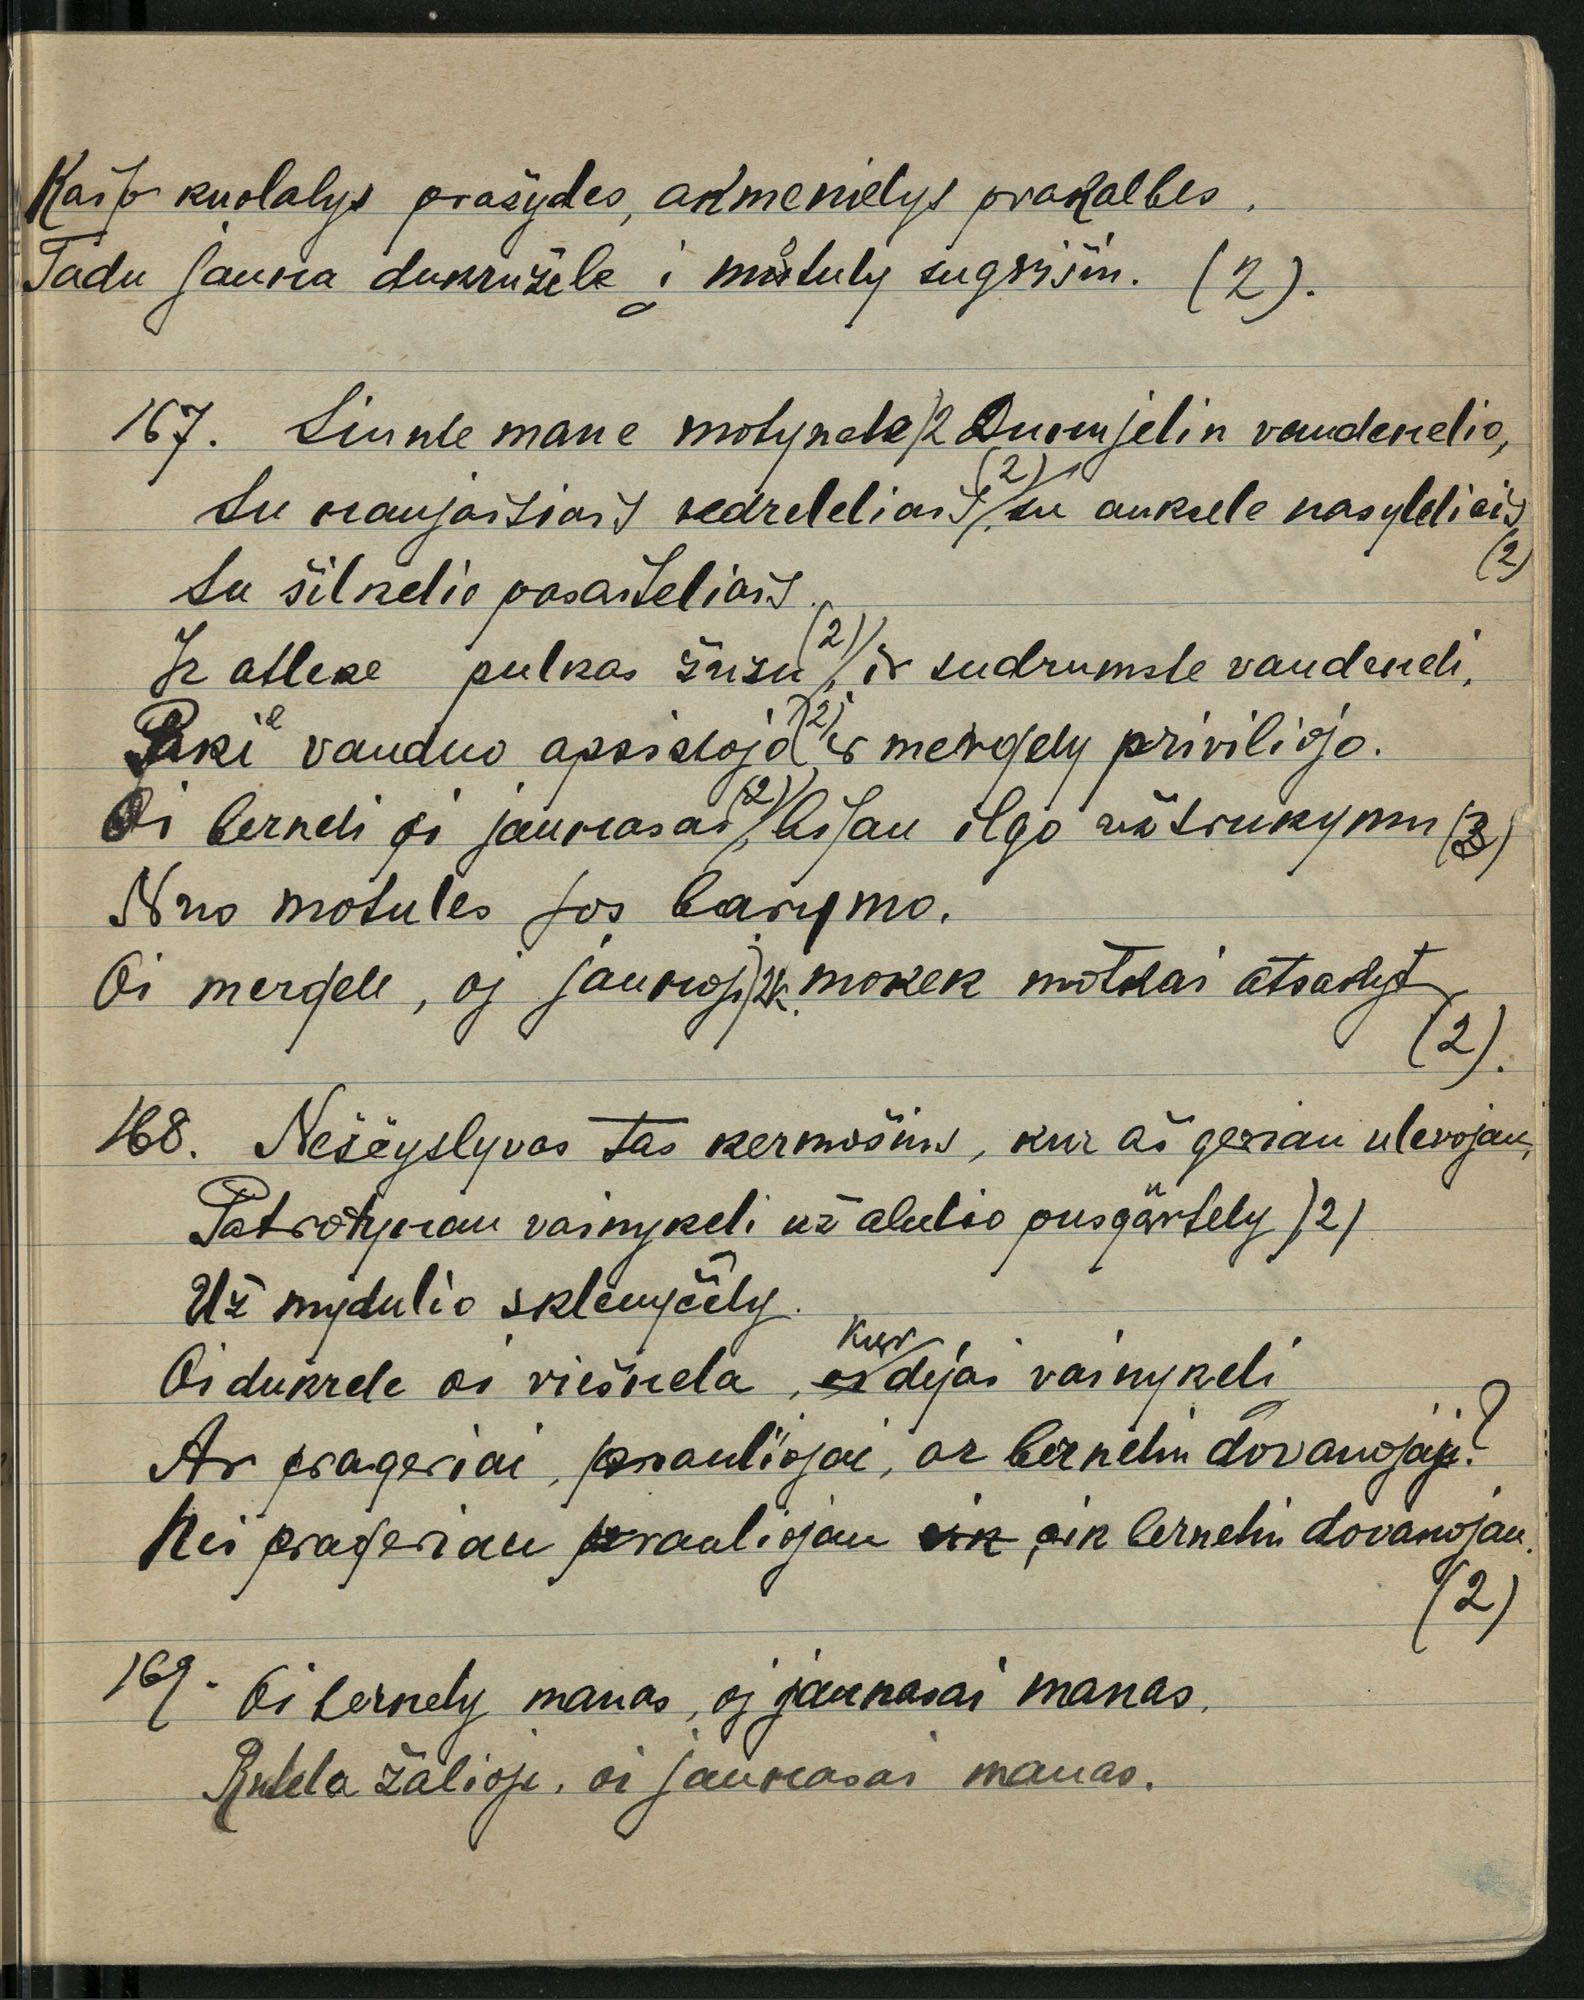 Kaip kuolalys prašydes, akmenielys prakalbes.
Tadu jauna dukružele į motuly sugrišiu. (2).
167. Siunte mane motynele)2 Dunojelin vandenelio,
Su naujaisiais vedreleliais, (2) su auksele nasyleliais (2)
Su šilkelio pasaiteliais.
Ir atleke pulkas žusu, (2) ir sudrumste vandeneli,
Pakiel vanduo apsistojo (2) ir mergely priviliojo.
Oi berneli oi jaunasai, (2) bijau ilgo užtrukymu (2)
Nuo motules jos barymo.
Oi mergele, oj jaunoji)2k. mokek motkai atsakyt
(2).
168. Nesčyslyvas tas kermošius, kur aš geriau ulevojau,
Patrotynau vainykeli už alutio pusgurtely )2)
Už mydulio sklenyčėly.
Oi dukrele oi viešnela, kur dėjai vainykeli
Ar prageriai, prauliojai, ar bernelin dovanojai?
Nei prageriau prauliojau eik, eik bernelin dovanojau.
(2)
169. Oi bernely manas, oj jaunasai manas,
Rutela žalioje, oi jaunasai manas.